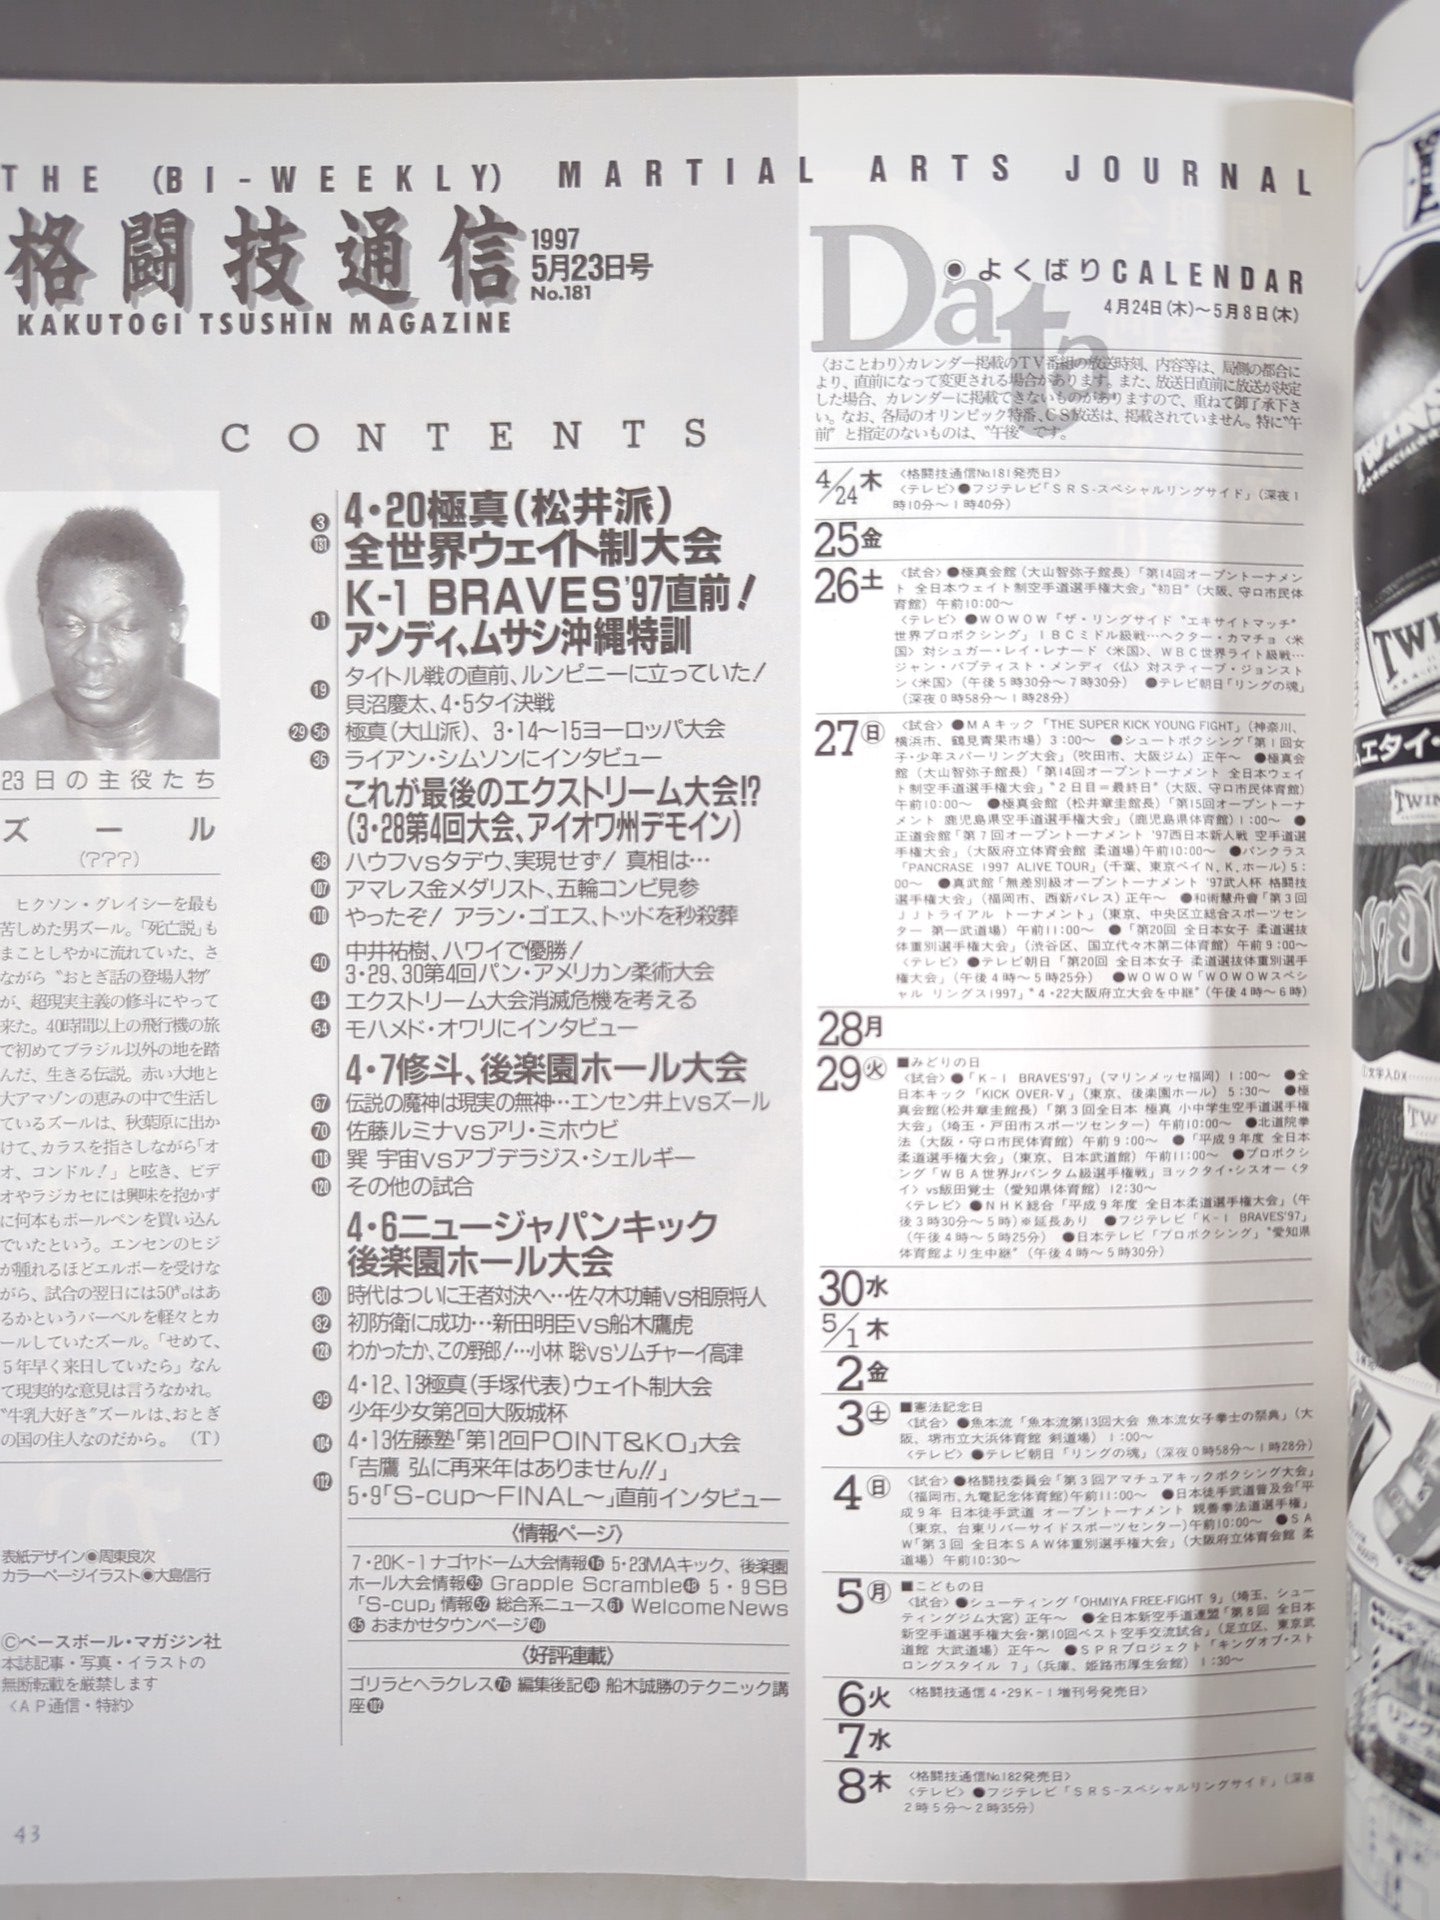 THE (BI-WEEKLY) MARTIAL ARTS JOURNAL
格闘技通信
1997
5月23日号
No.181
KAKUTOGI TSUSHIN MAGAZINE
CONTENTS
23日の主役たち
ズール
(???)
ヒクソン・グレイシーを最も
苦しめた男ズール。「死亡説」も
まことしやかに流れていた、さ
ながら〝おとぎ話の登場人物〟
が、超現実主義の修斗にやって
来た。40時間以上の飛行機の旅
で初めてブラジル以外の地を踏
んだ、生きる伝説。赤い大地と
大アマゾンの恵みの中で生活し
ているズールは、秋葉原に出か
けて、カラスを指さしながら「オ
オ、コンドル!」と呟き、ビデ
オやラジカセには興味を抱かず
に何本もボールペンを買い込ん
でいたという。エンセンのヒジ
が腫れるほどエルボーを受けな
がら、試合の翌日には50㌔はあ
るかというバーベルを軽々とカ
ールしていたズール。「せめて、
5年早く来日していたら」なん
て現実的な意見は言うなかれ。
〝牛乳大好き〟ズールは、おとぎ
の国の住人なのだから。 (T)
表紙デザイン◉周東良次
カラーページイラスト◉大島信行
©ベースボール・マガジン社
本誌記事・写真・イラストの
無断転載を厳禁します
〈AP通信・特約〉
43
3 131 4・20極真(松井派)
全世界ウェイト制大会
11 K-1 BRAVES'97直前!
アンディ、ムサシ沖縄特訓
19 タイトル戦の直前、ルンピニーに立っていた!
貝沼慶太、4・5タイ決戦
29 56 極真(大山派)、3・14〜15ヨーロッパ大会
36 ライアン・シムソンにインタビュー
これが最後のエクストリーム大会!?
(3・28第4回大会、アイオワ州デモイン)
38 ハウフvsタデウ、実現せず! 真相は…
107 アマレス金メダリスト、五輪コンビ見参
110 やったぞ! アラン・ゴエス、トッドを秒殺葬
40 中井祐樹、ハワイで優勝!
3・29、30第4回パン・アメリカン柔術大会
44 エクストリーム大会消滅危機を考える
54 モハメド・オワリにインタビュー
4・7修斗、後楽園ホール大会
67 伝説の魔神は現実の無神…エンセン井上vsズール
70 佐藤ルミナvsアリ・ミホウビ
118 巽 宇宙vsアブデラジス・シェルギー
120 その他の試合
4・6ニュージャパンキック
後楽園ホール大会
80 時代はついに王者対決へ…佐々木功輔vs相原将人
82 初防衛に成功…新田明臣vs船木鷹虎
128 わかったか、この野郎!…小林 聡vsソムチャーイ高津
99 4・12、13極真(手塚代表)ウェイト制大会
少年少女第2回大阪城杯
104 4・13佐藤塾「第12回POINT&KO」大会
112 「吉鷹 弘に再来年はありません!!」
5・9「S-cup〜FINAL〜」直前インタビュー
〈情報ページ〉
7・20K-1ナゴヤドーム大会情報16 5・23MAキック、後楽園
ホール大会情報39 Grapple Scramble48 5・9SB
「S-cup」情報52 総合系ニュース61 WelcomeNews
85 おまかせタウンページ90
〈好評連載〉
ゴリラとヘラクレス76 編集後記98 船木誠勝のテクニック講
座102
Data
◉よくばりCALENDAR
4月24日(木)〜5月8日(木)
〈おことわり〉カレンダー掲載のTV番組の放送時刻、内容等は、局側の都合に
より、直前になって変更される場合があります。また、放送日直前に放送が決定
した場合、カレンダーに掲載できないものがありますので、重ねて御了承下さ
い。なお、各局のオリンピック特番、CS放送は、掲載されていません。特に〝午
前〟と指定のないものは、〝午後〟です。
4/24木 〈格闘技通信No.181発売日〉
〈テレビ〉●フジテレビ「SRS-スペシャルリングサイド」(深夜1
時10分〜1時40分)
25金
26土 〈試合〉●極真会館(大山智弥子館長)「第14回オープントーナメン
ト 全日本ウェイト制空手道選手権大会」〝初日〟(大阪、守口市民体
育館)午前10:00〜
〈テレビ〉●WOWOW「ザ・リングサイド〝エキサイトマッチ〟
世界プロボクシング」IBCミドル級戦…ヘクター・カマチョ〈米
国〉対シュガー・レイ・レナード〈米国〉、WBC世界ライト級戦…
ジャン・バプティスト・メンディ〈仏〉対スティーブ・ジョンスト
ン〈米国〉(午後5時30分〜7時30分) ●テレビ朝日「リングの魂」
(深夜0時58分〜1時28分)
27日 〈試合〉●MAキック「THE SUPER KICK YOUNG FIGHT」(神奈川、
横浜市、鶴見青果市場)3:00〜 ●シュートボクシング「第1回女
子・少年スパーリング大会」(吹田市、大阪ジム)正午〜 ●極真会
館(大山智弥子館長)「第14回オープントーナメント 全日本ウェイ
ト制空手道選手権大会」〝2日目=最終日〟(大阪、守口市民体育館)
午前10:00〜 ●極真会館(松井章圭館長)「第15回オープントーナ
メント 鹿児島県空手道選手権大会」(鹿児島県体育館)1:00〜 ●
正道会館「第7回オープントーナメント '97西日本新人戦 空手道選
手権大会」(大阪府立体育会館 柔道場)午前10:00〜 ●パンクラス
「PANCRASE 1997 ALIVE TOUR」(千葉、東京ベイN.K.ホール)5:
00〜 ●真武館「無差別級オープントーナメント '97武人杯 格闘技
選手権大会」(福岡市、西新パレス)正午〜 ●和術慧舟會「第3回
JJトライアル トーナメント」(東京、中央区立総合スポーツセン
ター 第一武道場)午前11:00〜 ●「第20回 全日本女子 柔道選抜
体重別選手権大会」(渋谷区、国立代々木第二体育館)午前9:00〜
〈テレビ〉●テレビ朝日「第20回 全日本女子 柔道選抜体重別選手
権大会」(午後4時〜5時25分) ●WOWOW「WOWOWスペシ
ャル リングス1997」〝4・22大阪府立大会を中継〟(午後4時〜6時)
28月
29火 ■みどりの日
〈試合〉●「K-1 BRAVES'97」(マリンメッセ福岡)1:00〜 ●全
日本キック「KICK OVER-V」(東京、後楽園ホール)5:30〜 ●極
真会館(松井章圭館長)「第3回全日本 極真 小中学生空手道選手権
大会」(埼玉・戸田市スポーツセンター)午前10:00〜 ●北道院拳
法(大阪・守口市民体育館)午前9:00〜 ●「平成9年度 全日本
柔道選手権大会」(東京、日本武道館)午前11:00〜 ●プロボクシ
ング「WBA世界Jrバンタム級選手権戦」ヨックタイ・シスオー〈タ
イ〉vs飯田覚士(愛知県体育館)12:30〜
〈テレビ〉●NHK総合「平成9年度 全日本柔道選手権大会」(午
後3時30分〜5時)※延長あり ●フジテレビ「K-1 BRAVES'97」
(午後4時〜5時25分) ●日本テレビ「プロボクシング」〝愛知県
体育館より生中継〟(午後4時〜5時30分)
30水
5/1木
2金
3土 ■憲法記念日
〈試合〉●魚本流「魚本流第13回大会 魚本流女子拳士の祭典」(大
阪、堺市立大浜体育館 剣道場)1:00〜
〈テレビ〉●テレビ朝日「リングの魂」(深夜0時58分〜1時28分)
4日 〈試合〉●格闘技委員会「第3回アマチュアキックボクシング大会」
(福岡市、九電記念体育館)午前11:00〜 ●日本徒手武道普及会「平
成9年 日本徒手武道 オープントーナメント 親善拳法道選手権」
(東京、台東リバーサイドスポーツセンター)午前10:00〜 ●SA
W「第3回 全日本SAW体重別選手権大会」(大阪府立体育会館 柔
道場)午前10:30〜
5月 ■こどもの日
〈試合〉●シューティング「OHMIYA FREE-FIGHT 9」(埼玉、シュー
ティングジム大宮)正午〜 ●全日本新空手道連盟「第8回 全日本
新空手道選手権大会・第10回ベスト空手交流試合」(足立区、東京武
道館 大武道場)正午〜 ●SPRプロジェクト「キングオブ・スト
ロングスタイル 7」(兵庫、姫路市厚生会館)1:30〜
6火 〈格闘技通信4・29K-1増刊号発売日〉
7水
8木 〈格闘技通信No.182発売日〉
〈テレビ〉●フジテレビ「SRS-スペシャルリングサイド」(深夜
2時5分〜2時35分)
TWINS
TWIN
ムエタイ・